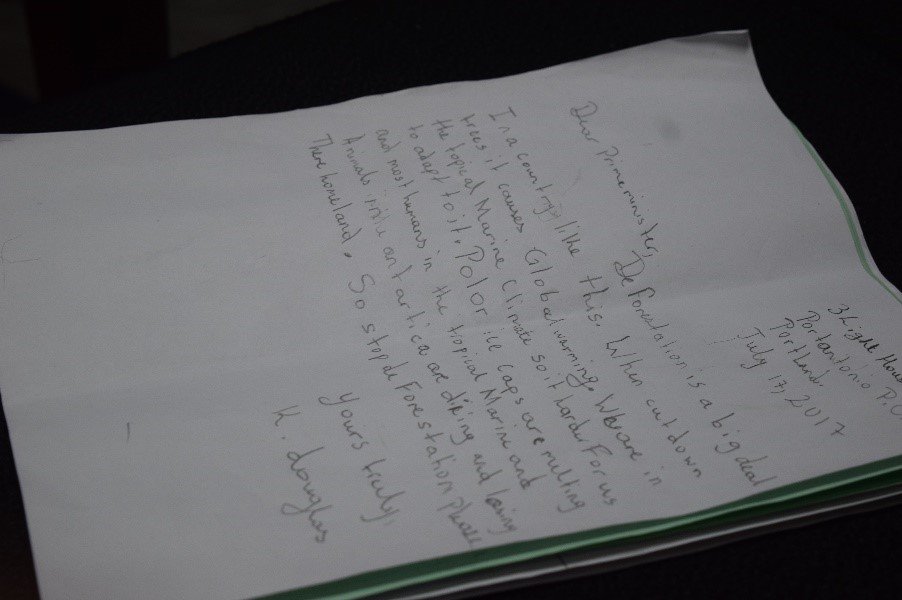 3 Light Hous
Portantonio P.O
Portland.
July 17, 2017
Dear Primeminister,
Deforestation is a big deal
In a country like this. When cut down
trees it causes Global warming. We are in
the topical Marine Climate so it harder For us
to adapt to it. Polor ice caps are melting
and most humans in the tropical Marine and
Animals in the antartica are diing and losing
There homeland. So stop deForestation please
Yours truly,
K. douglas